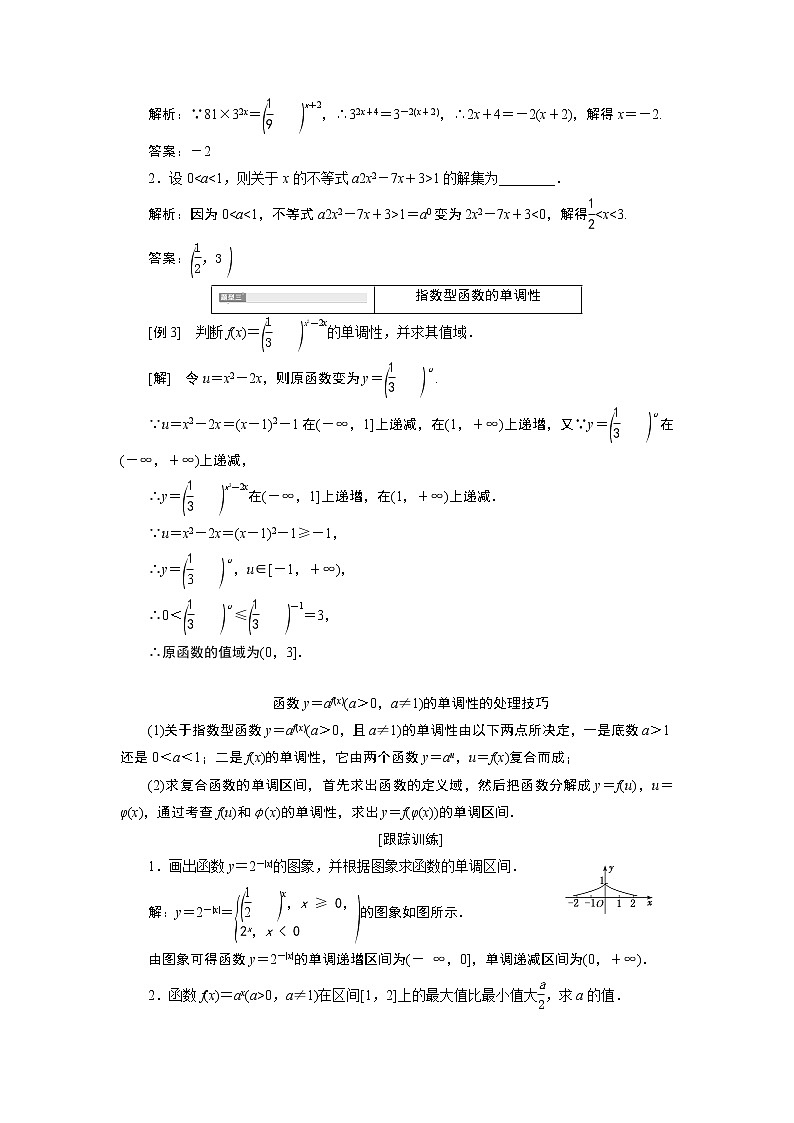 解析：∵81×3^{2x}=(1/9)^{x+2}，∴3^{2x+4}=3^{-2(x+2)}，∴2x+4=-2(x+2)，解得x=-2.
答案：-2
2．设0<a<1，则关于x的不等式a2x²-7x+3>1的解集为________．
解析：因为0<a<1，不等式a2x²-7x+3>1=a⁰变为2x²-7x+3<0，解得1/2<x<3.
答案：(1/2，3)
题型三 指数型函数的单调性
[例3]　判断f(x)=(1/3)^{x²-2x}的单调性，并求其值域．
[解]　令u=x²-2x，则原函数变为y=(1/3)^u.
∵u=x²-2x=(x-1)²-1在(-∞，1]上递减，在(1，+∞)上递增，又∵y=(1/3)^u在
(-∞，+∞)上递减，
∴y=(1/3)^{x²-2x}在(-∞，1]上递增，在(1，+∞)上递减．
∵u=x²-2x=(x-1)²-1≥-1，
∴y=(1/3)^u，u∈[-1，+∞)，
∴0＜(1/3)^u≤(1/3)^{-1}=3，
∴原函数的值域为(0，3]．
函数y=a^{f(x)}(a＞0，a≠1)的单调性的处理技巧
(1)关于指数型函数y=a^{f(x)}(a＞0，且a≠1)的单调性由以下两点所决定，一是底数a＞1
还是0＜a＜1；二是f(x)的单调性，它由两个函数y=a^u，u=f(x)复合而成；
(2)求复合函数的单调区间，首先求出函数的定义域，然后把函数分解成y=f(u)，u=
φ(x)，通过考查f(u)和φ(x)的单调性，求出y=f(φ(x))的单调区间．
[跟踪训练]
1．画出函数y=2^{-|x|}的图象，并根据图象求函数的单调区间．
y
1
-2 -1 O 1 2 x
解：y=2^{-|x|}={(1/2)^x，x ≥ 0，
2^x，x < 0)的图象如图所示．
由图象可得函数y=2^{-|x|}的单调递增区间为(- ∞，0]，单调递减区间为(0，+∞)．
2．函数f(x)=a^x(a>0，a≠1)在区间[1，2]上的最大值比最小值大a/2，求a的值．